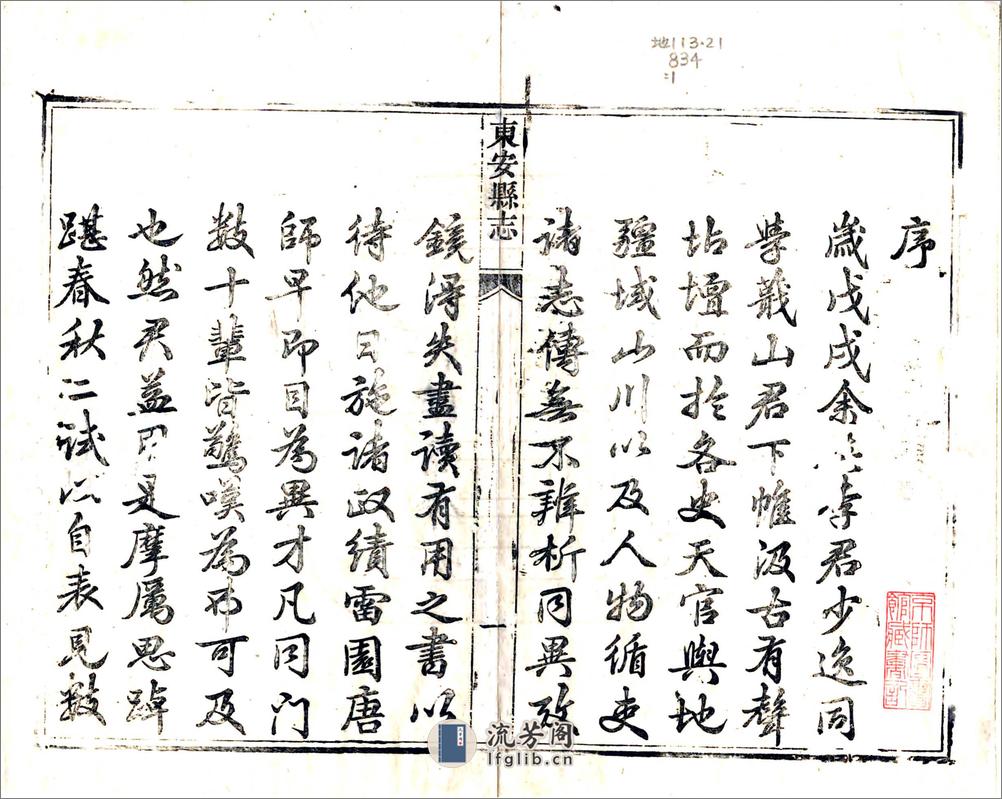 地113.21
834
:1
序
歲戊戌余與李君少逸同
學蕺山君下帷汲古有聲
坫壇而於各史天官輿地
疆域山川以及人物循吏
諸志傳無不辨析同異攷
東安縣志
一
鏡得失盡讀有用之書以
待他日施諸政績雷園唐
師早即目為異才凡同門
數十輩皆驚嘆為不可及
也然君益用是摩厲思踔
踸春秋二試以自表見數
流芳阁
lfglib.cn